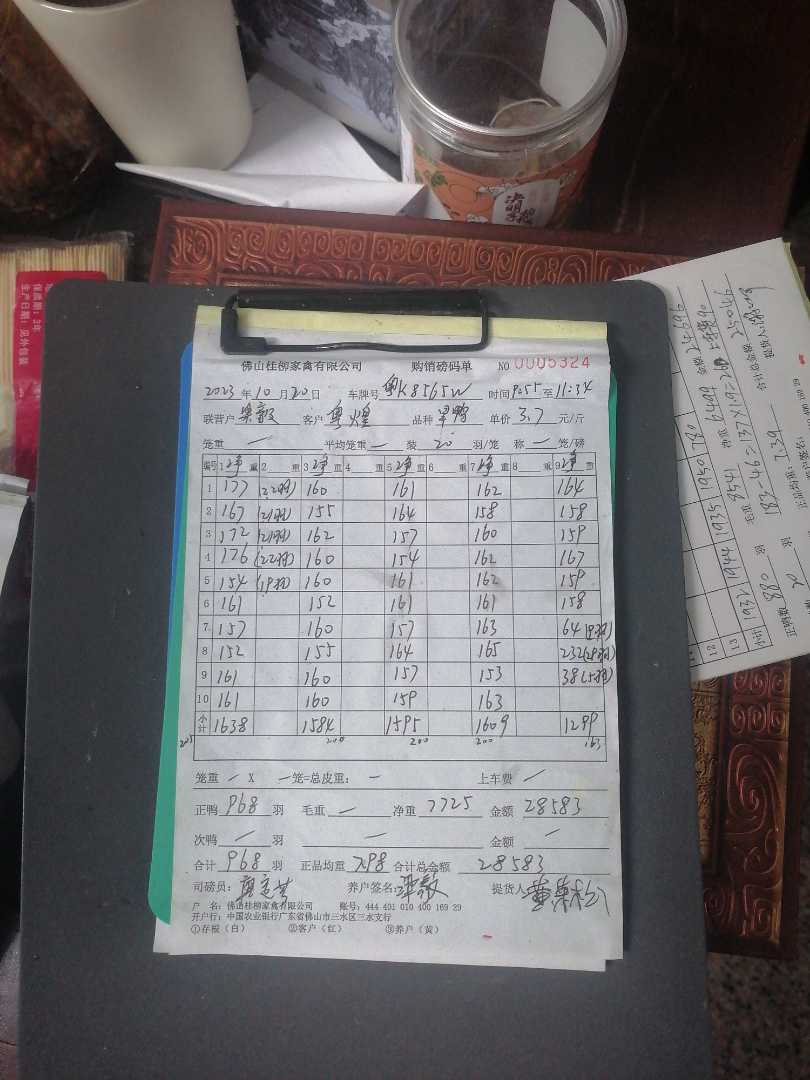 佛山桂柳家禽有限公司 购销磅码单 NO 0005324
2023年10月20日 车牌号 粤K8565W 时间 9:55 至 11:34
联营户 客户 粤煌 品种 旱鸭 单价 3.7 元/斤
笼重 — 平均笼重 — 装 20 羽/笼 称 — 笼/磅
编号 1 净重 2 重 3 净重 4 重 5 净重 6 重 7 净重 8 重 9 净重
1 177 (22羽) 160 161 162 164
2 167 (21羽) 155 164 158 158
3 172 (21羽) 162 157 160 159
4 176 (22羽) 160 154 162 167
5 154 (19羽) 160 161 162 159
6 161 152 161 161 158
7 157 160 157 163 64 (8羽)
8 152 155 164 165 232 (28羽)
9 161 160 157 153 38 (5羽)
10 161 160 159 163
小计 1638 1584 1595 1609 1299
205 200 200 200 163
笼重 — X —笼=总皮重: — 上车费 —
正鸭 968 羽 毛重 — 净重 7725 金额 28583
次鸭 — 羽 — 金额 —
合计 968 羽 正品均重 7.98 合计总金额 28583
司磅员: 养户签名: 提货人
户 名: 佛山桂柳家禽有限公司 账号: 444 401 010 400 169 29
开户行: 中国农业银行广东省佛山市三水区三水支行
①存根(白) ②客户(红) ③养户(黄)
保质期: 3年
生产日期: 见外包装
11
12
13
小计 1932 1944 1935 1950 780
正鸭数 880 羽 毛重 8541 净重 6499 金额
183-46=137×
20 羽 正品均重: 7.39 合计总金额